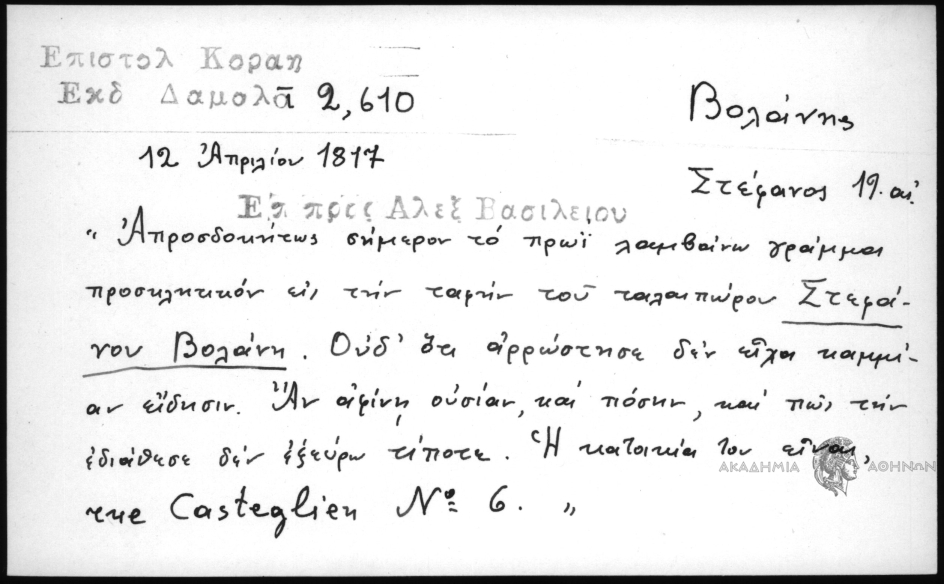 Επιστολ Κοραη
Εκδ Δαμαλᾶ 2,610
Βολάνης
12 Ἀπριλίου 1817
Στέφανος 19. αἰ.
Επ προς Αλεξ Βασιλειου
" Ἀπροσδοκήτως σήμερον τό πρωΐ λαμβαίνω γράμμα
προσκλητικόν εἰς τήν ταφήν τοῦ ταλαιπώρου Στεφά-
νου Βολάνη. Οὐδ' ὅτι ἀρρώστησε δέν εἶχα καμμί-
αν εἴδησιν. Ἄν ἀφίνῃ οὐσίαν, καί πόσην, καί πῶς τήν
ἐδιάθεσε δέν ἐξεύρω τίποτε. Ἡ κατοικία του εἶναι,
ΑΚΑΔΗΜΙΑ ΑΘΗΝΩΝ
rue Casteglien Nº 6. "